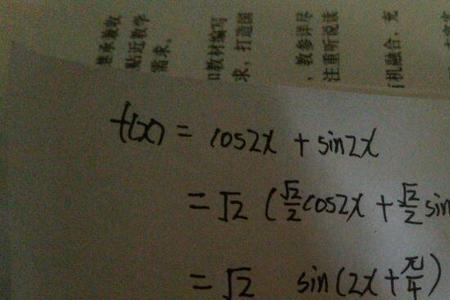 继承兼收
贴近教学
需求。
教材编写
求，打造国
，教参详尽
注重听说读
机融合，充
f(x) = cos2x + sin2x
= √2 (√2/2 cos2x + √2/2 sin
= √2 sin(2x + π/4)